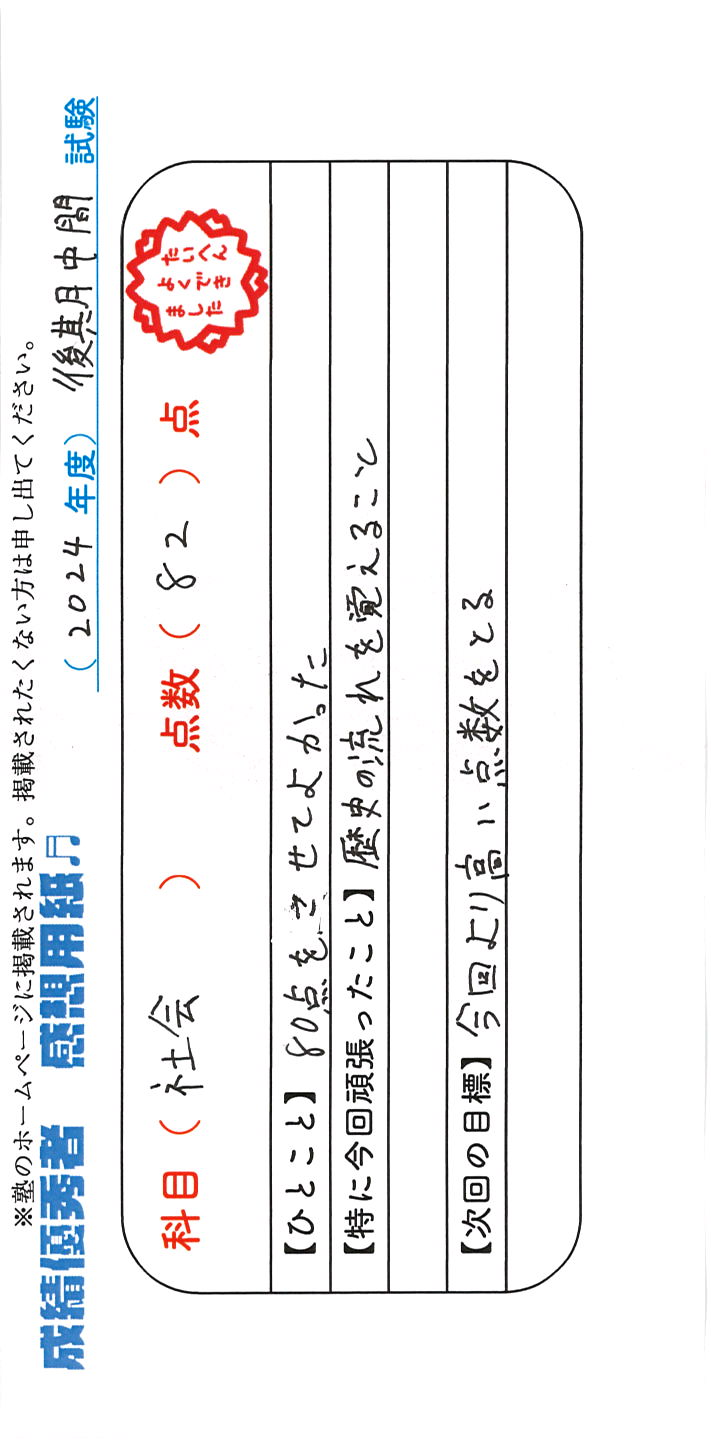 ※塾のホームページに掲載されます。掲載されたくない方は申し出てください。
成績優秀者 感想用紙♬ (2024年度) 後期中間 試験
科目（社会 ） 点数（82）点
たいへん
よくでき
ました
【ひとこと】80点をこせてよかった
【特に今回頑張ったこと】歴史の流れを覚えること
【次回の目標】今回より高い点数をとる